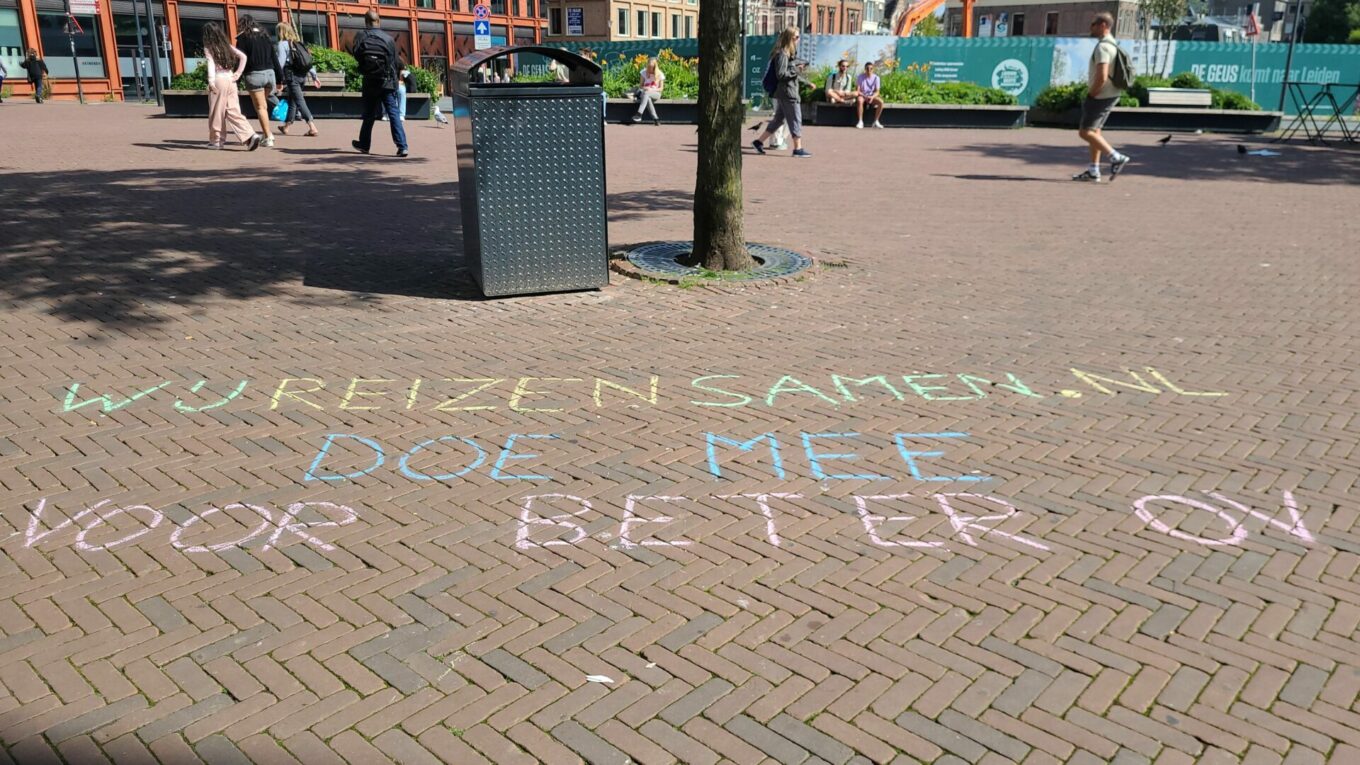 DE GEUS komt naar Leiden
WIJ REIZEN SAMEN.NL
DOE MEE
VOOR BETER OV